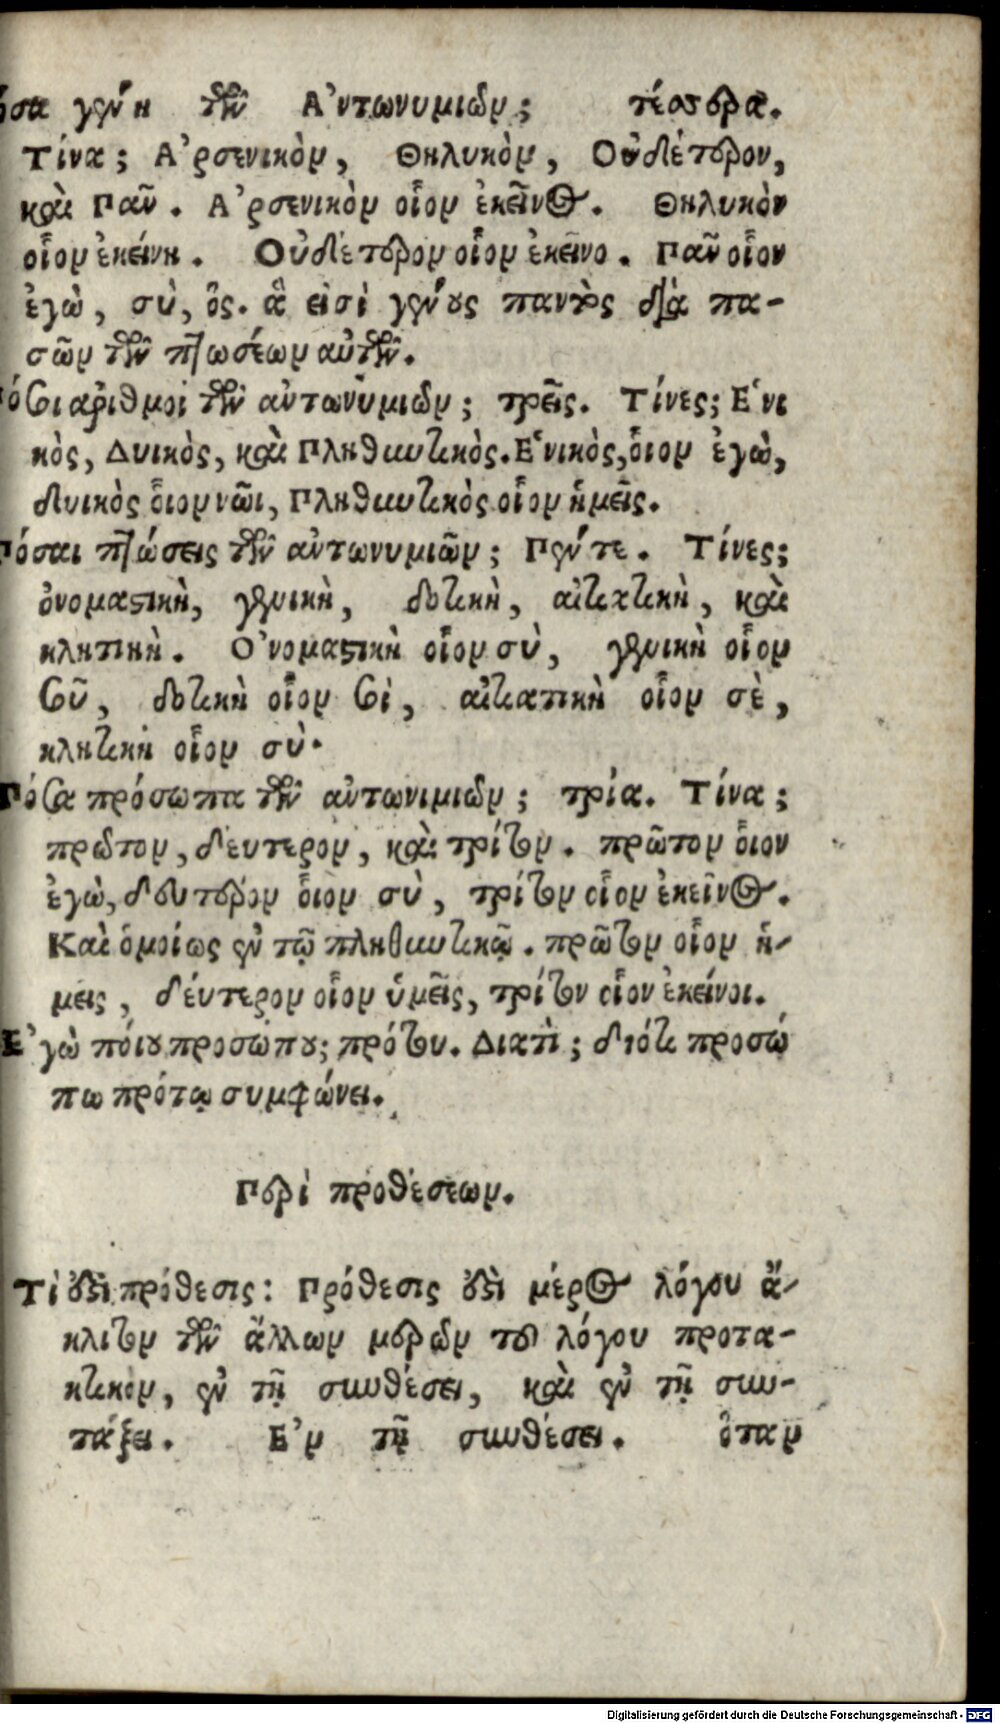 όσα γένη τῶν Ἀντωνυμιῶν; τέσσερα.
Τίνα; Ἀρσενικὸν, Θηλυκὸν, Οὐδέτερον,
καὶ Πᾶν. Ἀρσενικὸν οἷον ἐκεῖνος. Θηλυκὸν
οἷον ἐκείνη. Οὐδέτερον οἷον ἐκεῖνο. Πᾶν οἷον
ἐγὼ, σὺ, ὃς. ἃ εἰσὶ γένους παντὸς διὰ πα-
σῶν τῶν πτώσέων αὐτῶν.
όσοι ἀριθμοὶ τῶν ἀντωνύμιῶν; τρεῖς. Τίνες; Ἑνι
κὸς, Δυικὸς, καὶ Πληθυντικὸς. Ἑνικὸς, ὅιον ἐγὼ,
δυικὸς ὅιον νῶι, Πληθυντικὸς οἷον ἡμεῖς.
Πόσαι πτώσεις τῶν ἀντωνυμιῶν; Πέντε. Τίνες;
ὀνομαστικὴ, γενικὴ, δοτικὴ, αἰτιατικὴ, καὶ
κλητικὴ. Ὀνομαστικὴ οἷον σὺ, γενικὴ οἷον
σοῦ, δοτικὴ οἷον σοὶ, αἰτιατικὴ οἷον σὲ,
κλητικὴ οἷον σὺ.
Πόσα πρόσωπα τῶν ἀντωνιμιῶν; τρία. Τίνα;
πρῶτον, δεύτερον, καὶ τρίτον. πρῶτον ὅιον
ἐγὼ, δευτερόν ὅιον σὺ, τρίτον οἷον ἐκεῖνος.
Καὶ ὁμοίως ἐν τῷ πληθυντικῷ. πρῶτον οἷον ἡ-
μεις, δέυτερον οἷον ὑμεῖς, τρίτον οἷον ἐκείνοι.
Ἐγὼ πόιου προσώπου; πρότου. Διατὶ; διότι προσώ
πω πρότῳ συμφώνει.
Περὶ προθέσεων.
Τὶ ἐστὶ πρόθεσις: Πρόθεσις ἐστὶ μέρος λόγου ἄ-
κλιτον τῶν ἄλλων μερῶν τοῦ λόγου προτα-
κτικὸν, ἐν τῇ συνθέσει, καὶ ἐν τῇ συν-
τάξει. Ἐν τῇ συνθέσει. ὁταν
Digitalisierung gefördert durch die Deutsche Forschungsgemeinschaft - DFG